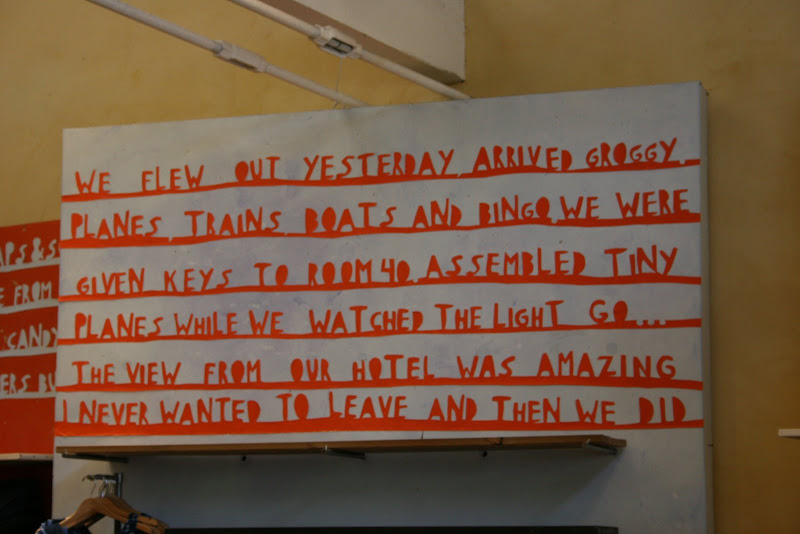 WE FLEW OUT YESTERDAY, ARRIVED GROGGY.
PLANES, TRAINS, BOATS AND BINGO, WE WERE
GIVEN KEYS TO ROOM 40, ASSEMBLED TINY
PLANES WHILE WE WATCHED THE LIGHT GO...
THE VIEW FROM OUR HOTEL WAS AMAZING
I NEVER WANTED TO LEAVE AND THEN WE DID
FROM
CANDY